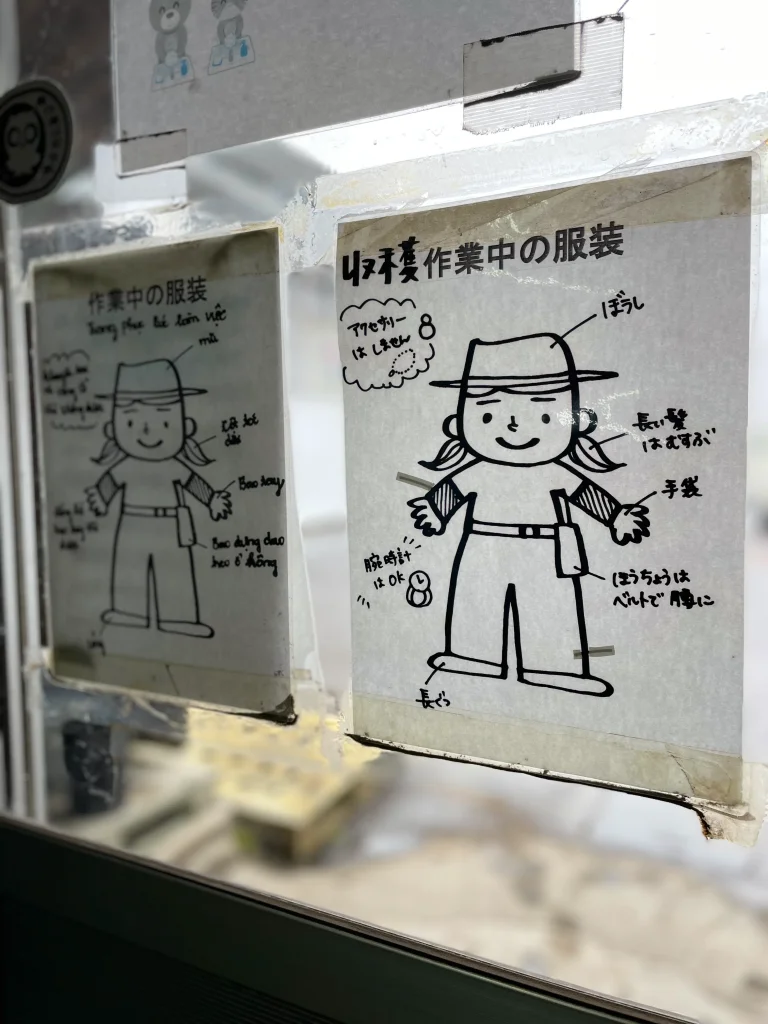 作業中の服装
Trang phục khi làm việc
mũ
Cột tóc
dài
Bao tay
Bao đựng dao
đeo ở hông
ủng
収穫作業中の服装
アクセサリー
はしません
ぼうし
長い髪
はむすぶ
手袋
腕時計
はOK
ほうちょうは
ベルトで腰に
長ぐつ